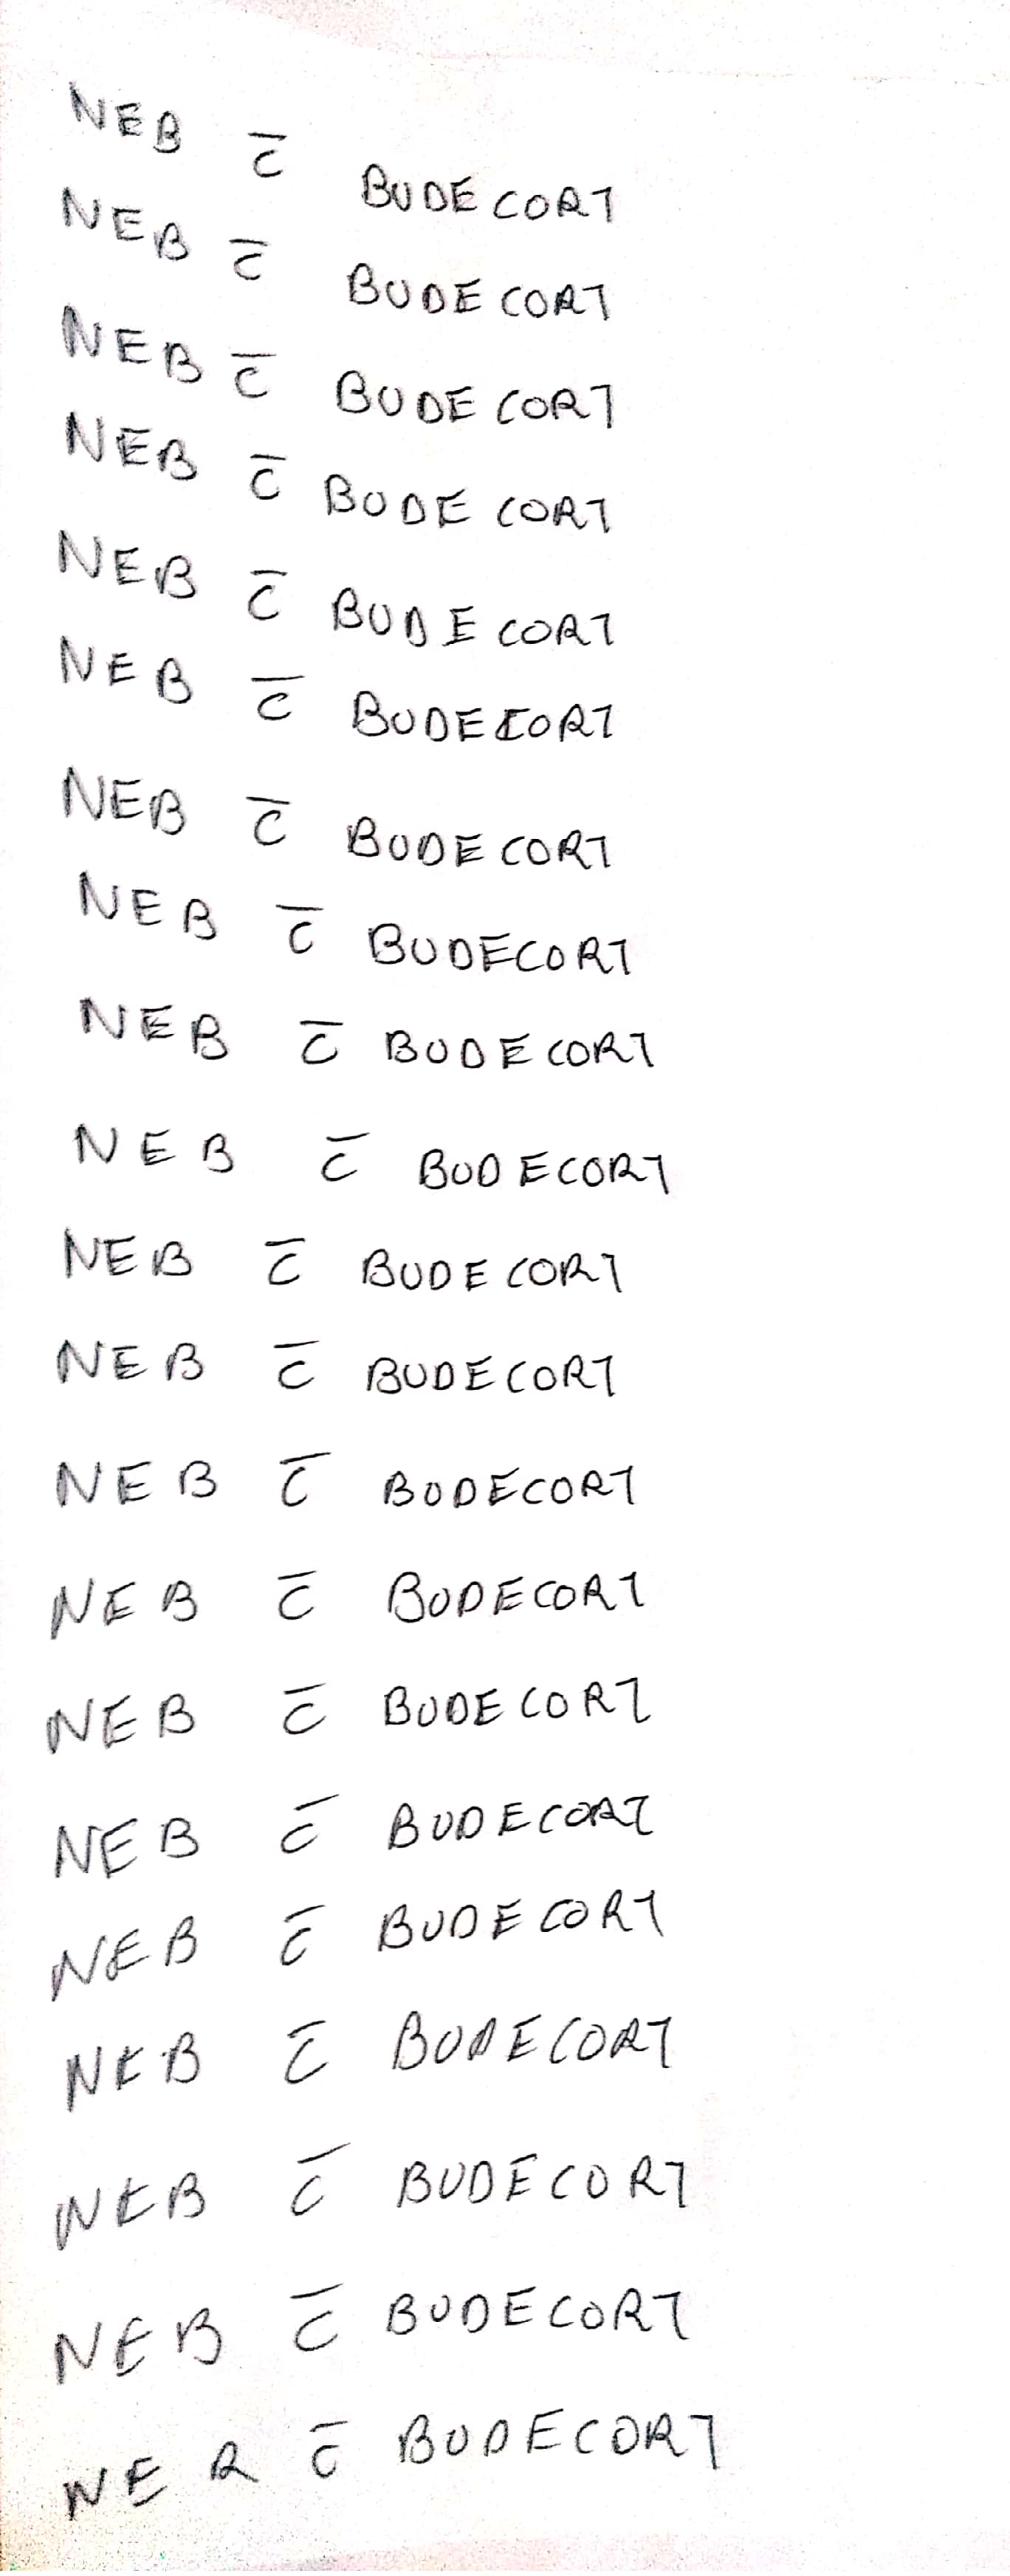 NEB c̄ BUDECORT
NEB c̄ BUDECORT
NEB c̄ BUDECORT
NEB c̄ BUDECORT
NEB c̄ BUDECORT
NEB c̄ BUDECORT
NEB c̄ BUDECORT
NEB c̄ BUDECORT
NEB c̄ BUDECORT
NEB c̄ BUDECORT
NEB c̄ BUDECORT
NEB c̄ BUDECORT
NEB c̄ BUDECORT
NEB c̄ BUDECORT
NEB c̄ BUDECORT
NEB c̄ BUDECORT
NEB c̄ BUDECORT
NEB c̄ BUDECORT
NEB c̄ BUDECORT
NEB c̄ BUDECORT
NEB c̄ BUDECORT